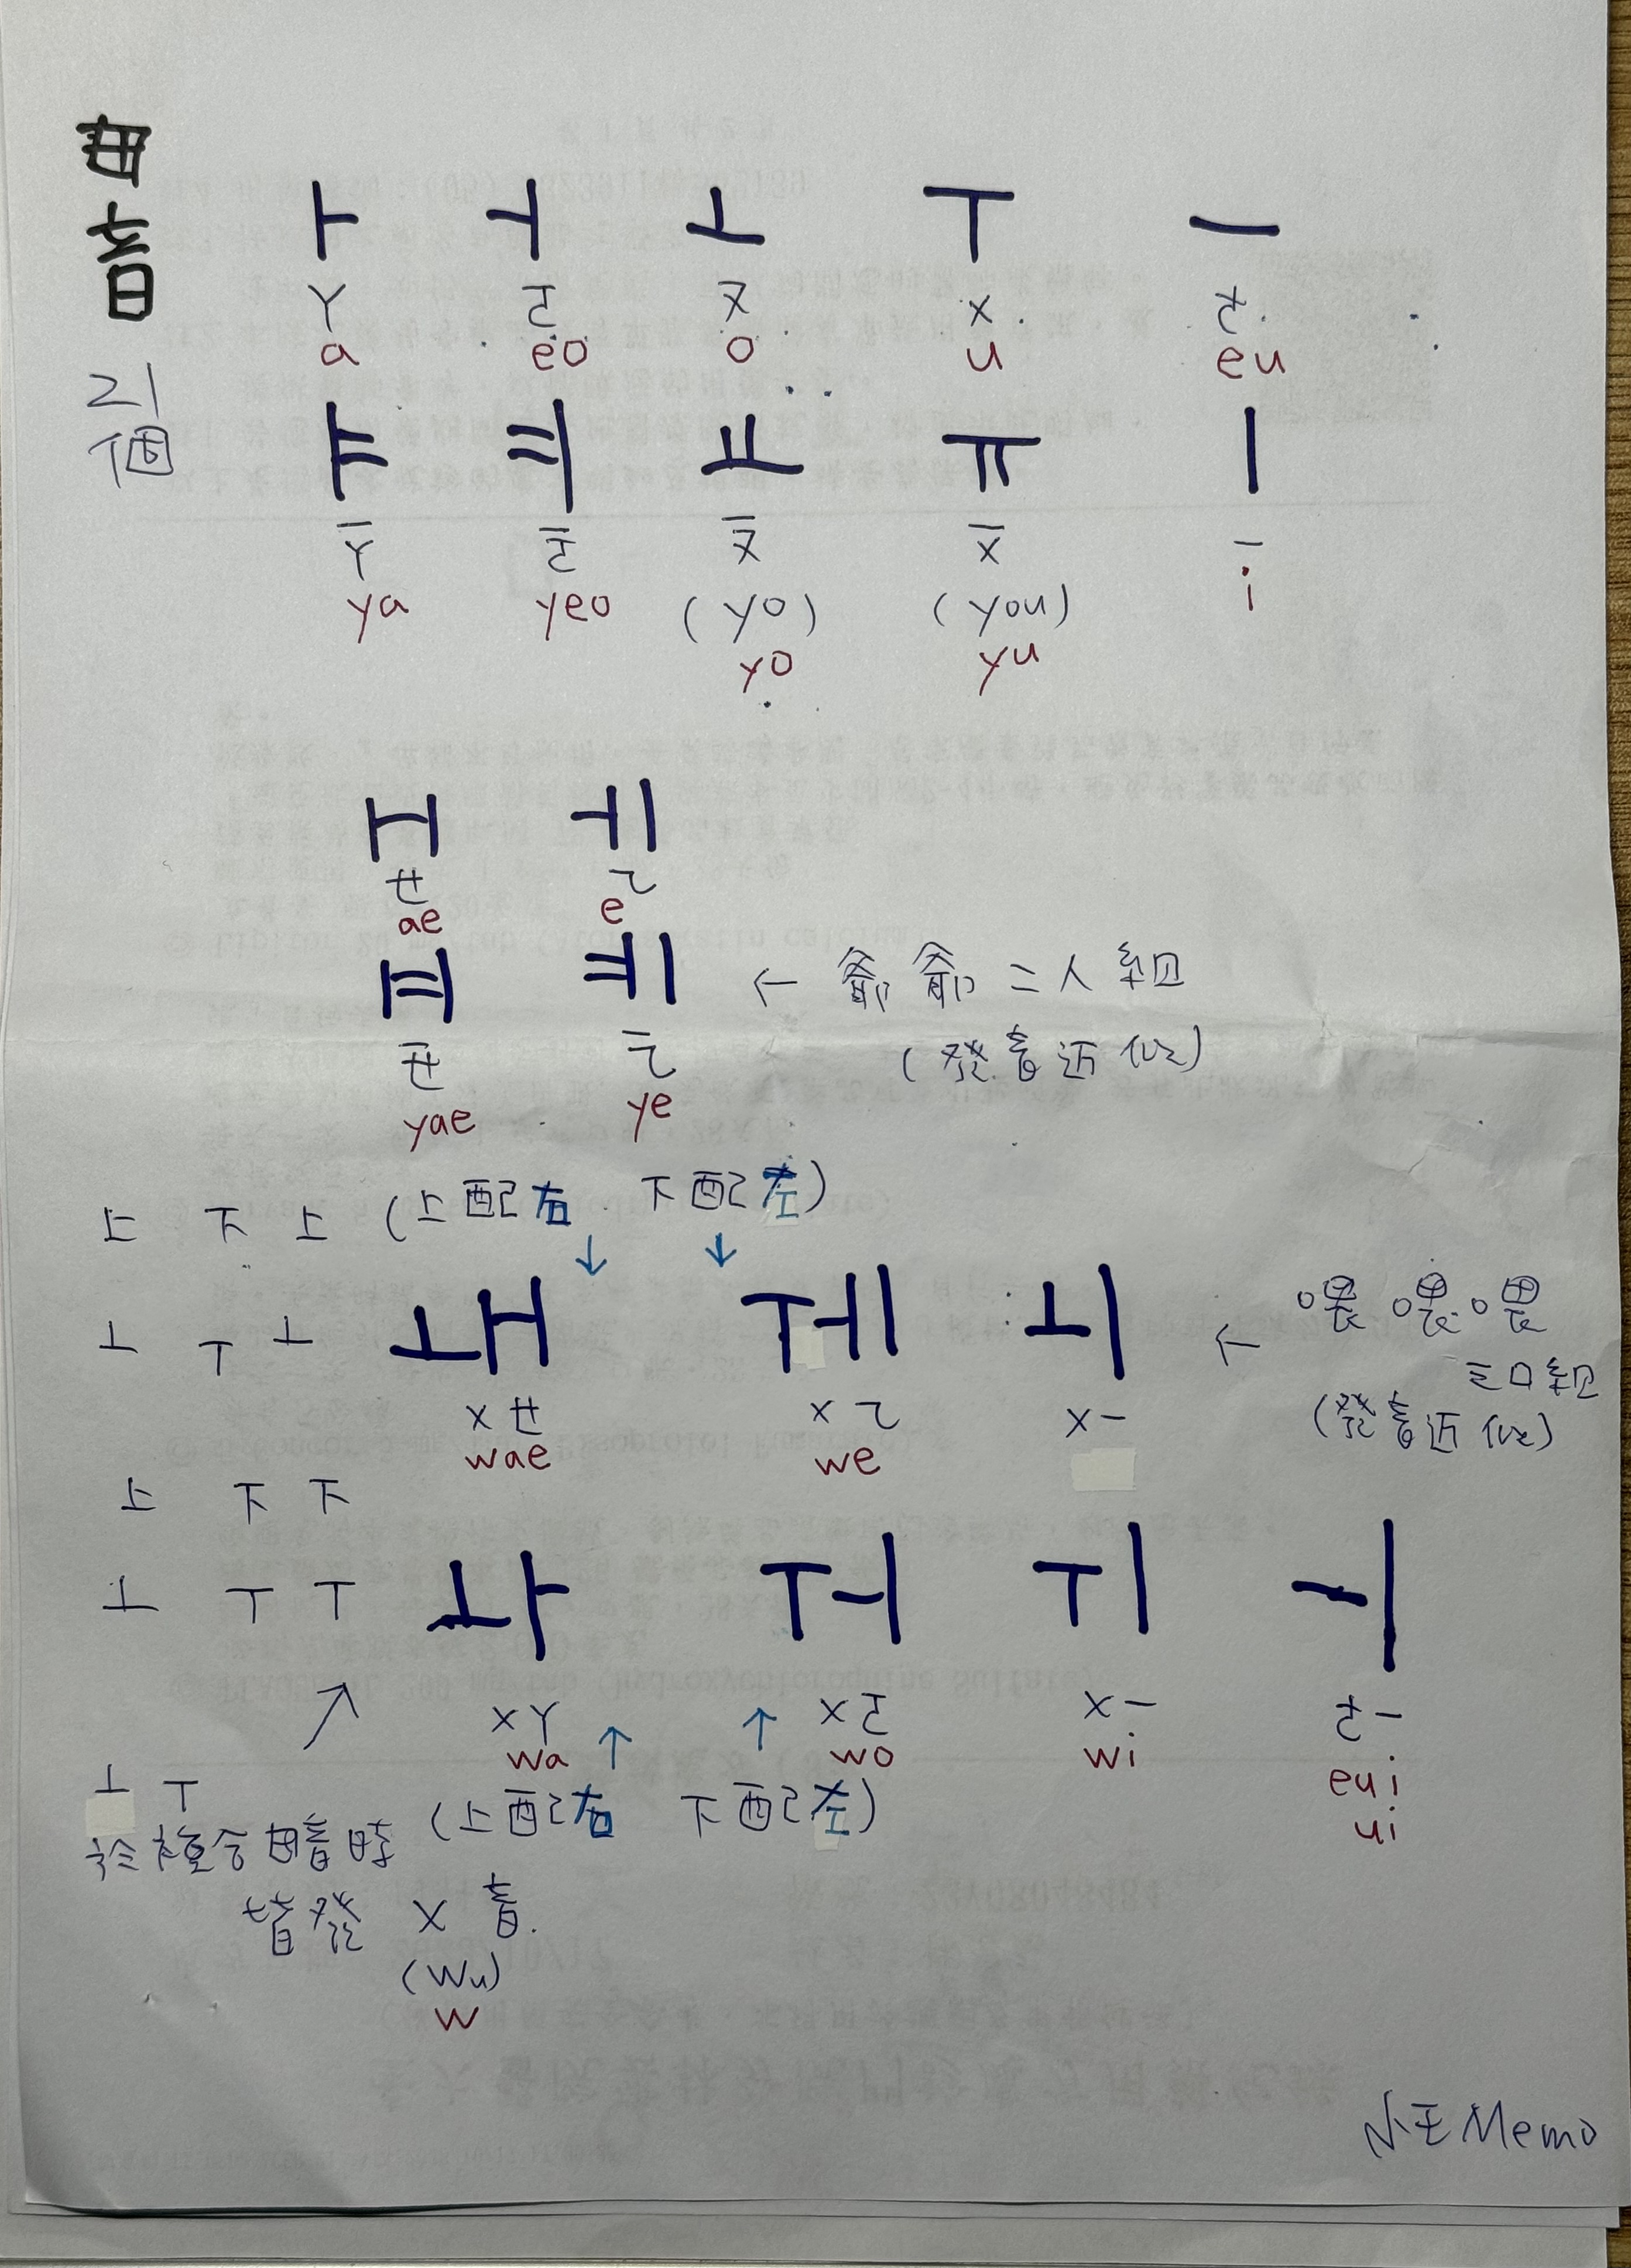 母音
21
個
ㅏ ㅓ ㅗ ㅜ ㅡ
ㄚ ㄛ ㄡ ㄨ ㄜ
a eo o u eu
ㅑ ㅕ ㅛ ㅠ ㅣ
ㄧㄚ ㄧㄛ ㄧㄡ ㄧㄨ ㄧ
ya yeo (yo) (you) i
yo yu
ㅐ ㅔ
ㄝ ㄟ
ae e
ㅒ ㅖ ← 爺爺二人組
ㄧㄝ ㄧㄟ (發音近似)
yae ye
上 下 上 (上配右 下配左)
↓ ↓
ㅗ ㅜ ㅗ ㅙ ㅞ ㅚ ← 喂喂喂
三口組
ㄨㄝ ㄨㄟ ㄨㄧ (發音近似)
wae we
上 下 下
ㅗ ㅜ ㅜ ㅘ ㅝ ㅟ ㅢ
↗ ㄨㄚ ↑ ↑ ㄨㄛ ㄨㄧ ㄜㄧ
wa wo wi eui
ui
ㅗ ㅜ (上配右 下配左)
於複合母音時
皆發 ㄨ 音.
(Wu)
W
小王Memo